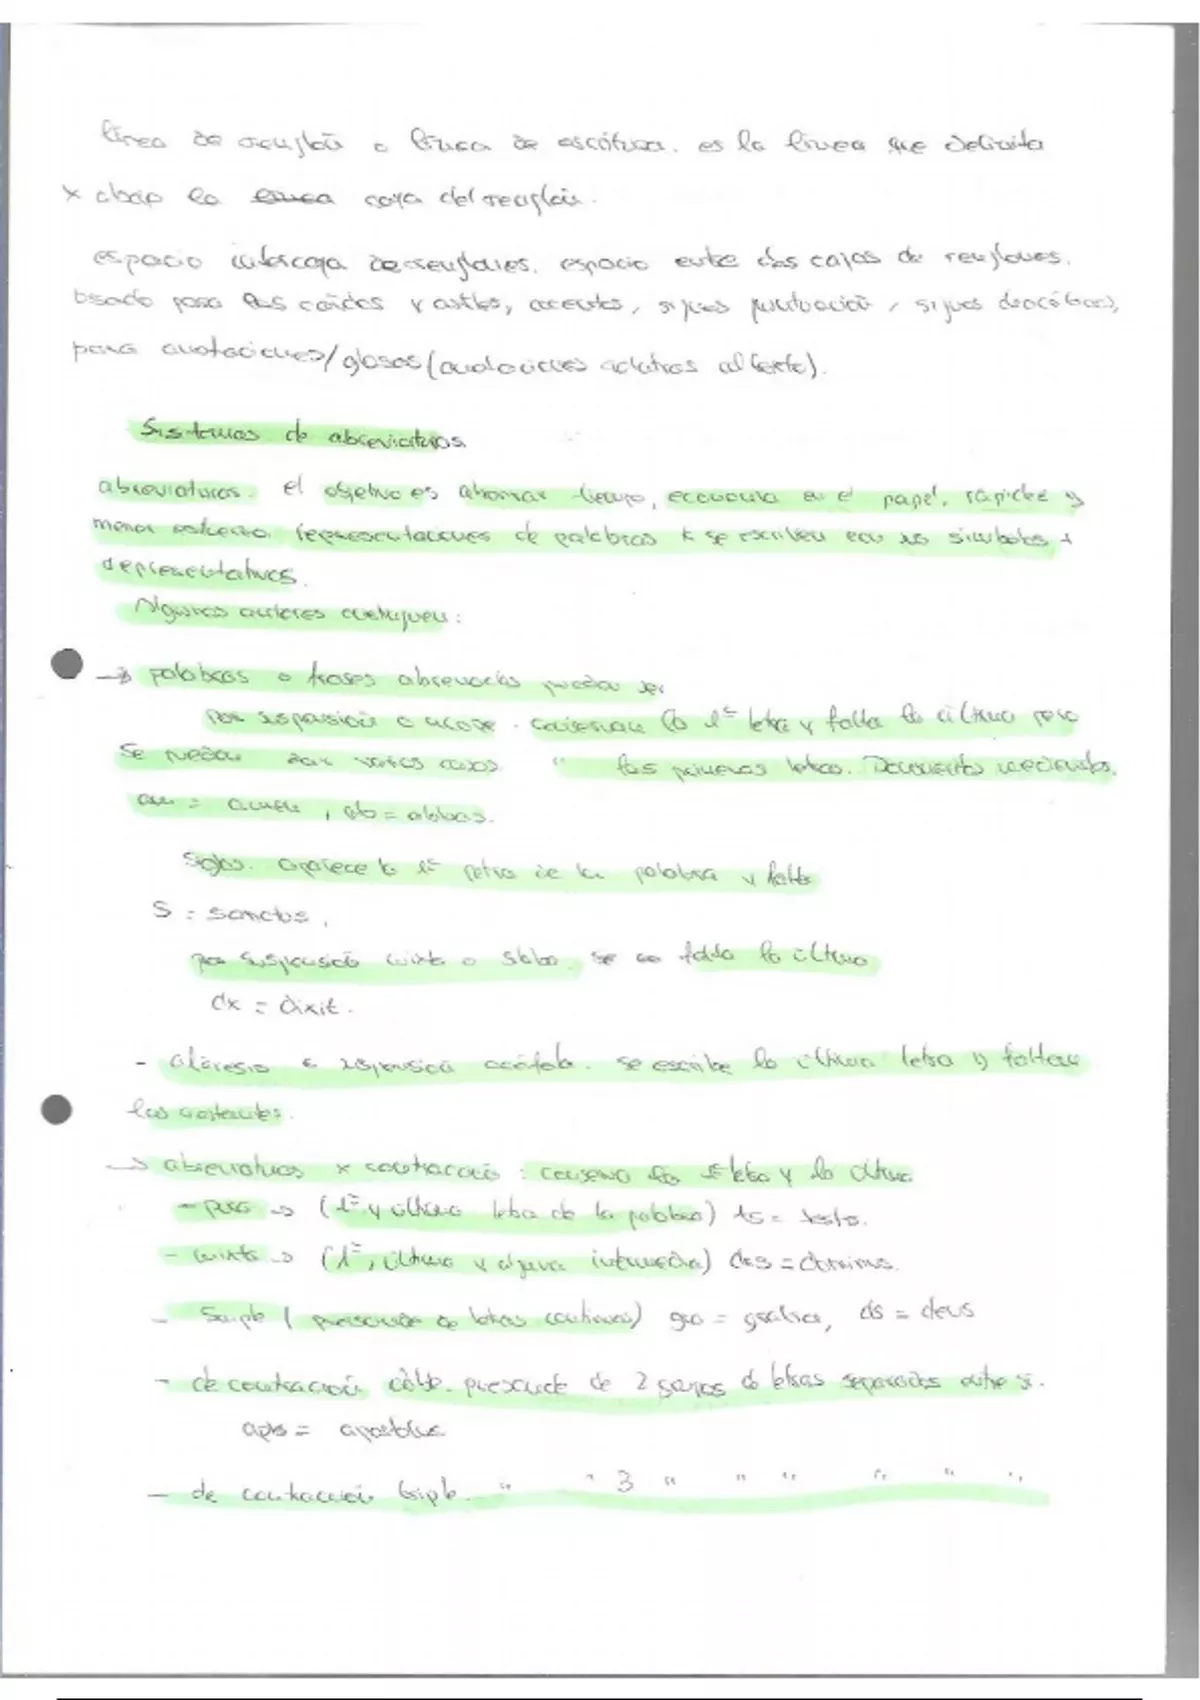 línea de renglón o línea de escritura. es la línea que delimita
x abajo la linea caja del renglón.
espacio intercaja de renglones. espacio entre dos cajas de renglones.
usado para los caídos y astiles, acentos, signos puntuación, signos diacríticos,
para anotaciones/glosas (anotaciones al texto).
Sistemas de abreviaturas
abreviaturas. el objetivo es ahorrar tiempo, economía en el papel, rapidez y
menor esfuerzo. representaciones de palabras k se escriben con los símbolos +
representativos.
Algunos autores distinguen:
→ palabras o frases abreviadas pueden ser
por suspensión o . conservan la 1ª letra y falta la última pero
se pueden dar varios casos. " las primeras letras. Documentos medievales.
am = amen, ab = abbas.
Siglas. aparece la 1ª letra de la palabra y falta
S = sanctus,
por suspensión mixta o sílaba. falta la última
dx = dixit.
- aféresis o suspensión acéfala. se escribe la última letra y faltan
las restantes.
→ abreviaturas x contracción: conserva la 1ª letra y la última
- pura → (1ª y última letra de la palabra) ts = testis.
- mixta → (1ª, última y alguna intermedia) dns = dominus.
- Simple (prescinde de letras continuas) gra = gratia, ds = deus
- de contracción doble. prescinde de 2 grupos de letras separados entre sí.
apls = apostolus
- de contracción triple. " " 3 " " " " " "